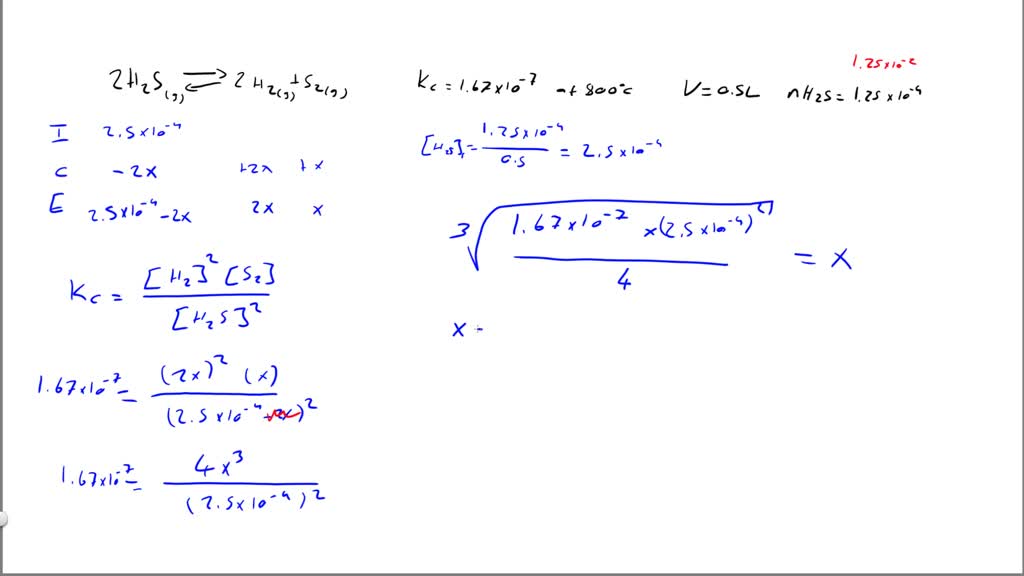 1.25x10⁻²
2H₂S(g) ⇌ 2H₂(g)+S₂(g) Kc = 1.67x10⁻⁷ at 800°c V=0.5L nH₂S= 1.25x10⁻⁴
I 2.5x10⁻⁴
C -2x +2x +x
E 2.5x10⁻⁴-2x 2x x
[H₂S]ᵢ = 1.25x10⁻⁴ / 0.5 = 2.5x10⁻⁴
∛(1.67x10⁻⁷ x(2.5x10⁻⁴)² / 4) = x
Kc = [H₂]² [S₂] / [H₂S]²
x =
1.67x10⁻⁷ = (2x)² (x) / (2.5x10⁻⁴-2x)²
1.67x10⁻⁷ = 4x³ / (2.5x10⁻⁴)²